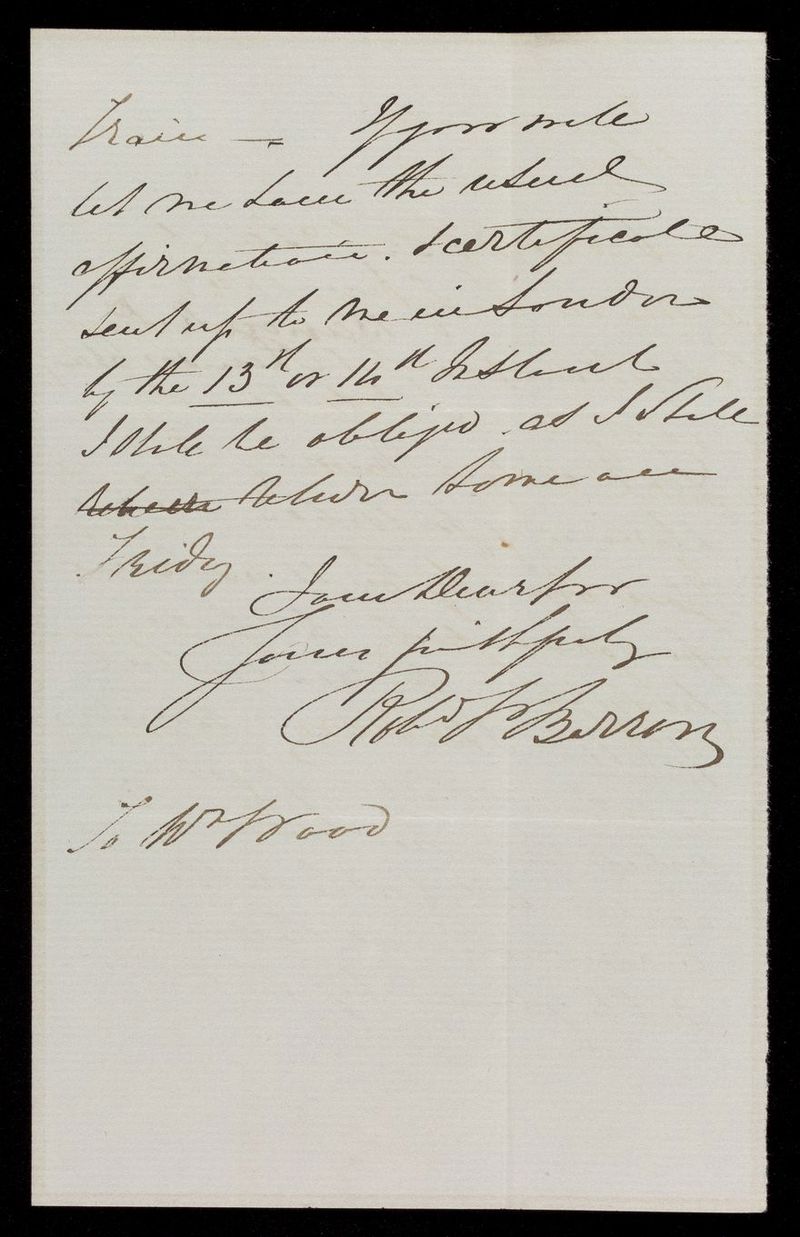 Train — If you will
let me have the usual
affirmation & certificate
sent up to me in London
by the 13th or 14th Instant
I shall be obliged as I shall
return home on
Friday.
I am Dear Sir
Yours faithfully
Robt Barron
To Wm Wood